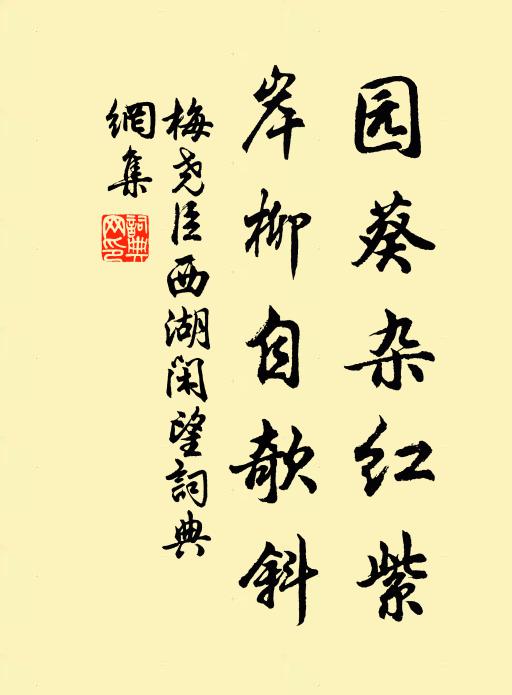 园葵杂红紫
岸柳自欹斜
梅尧臣西湖闲望詞典
網集
詞典
网印